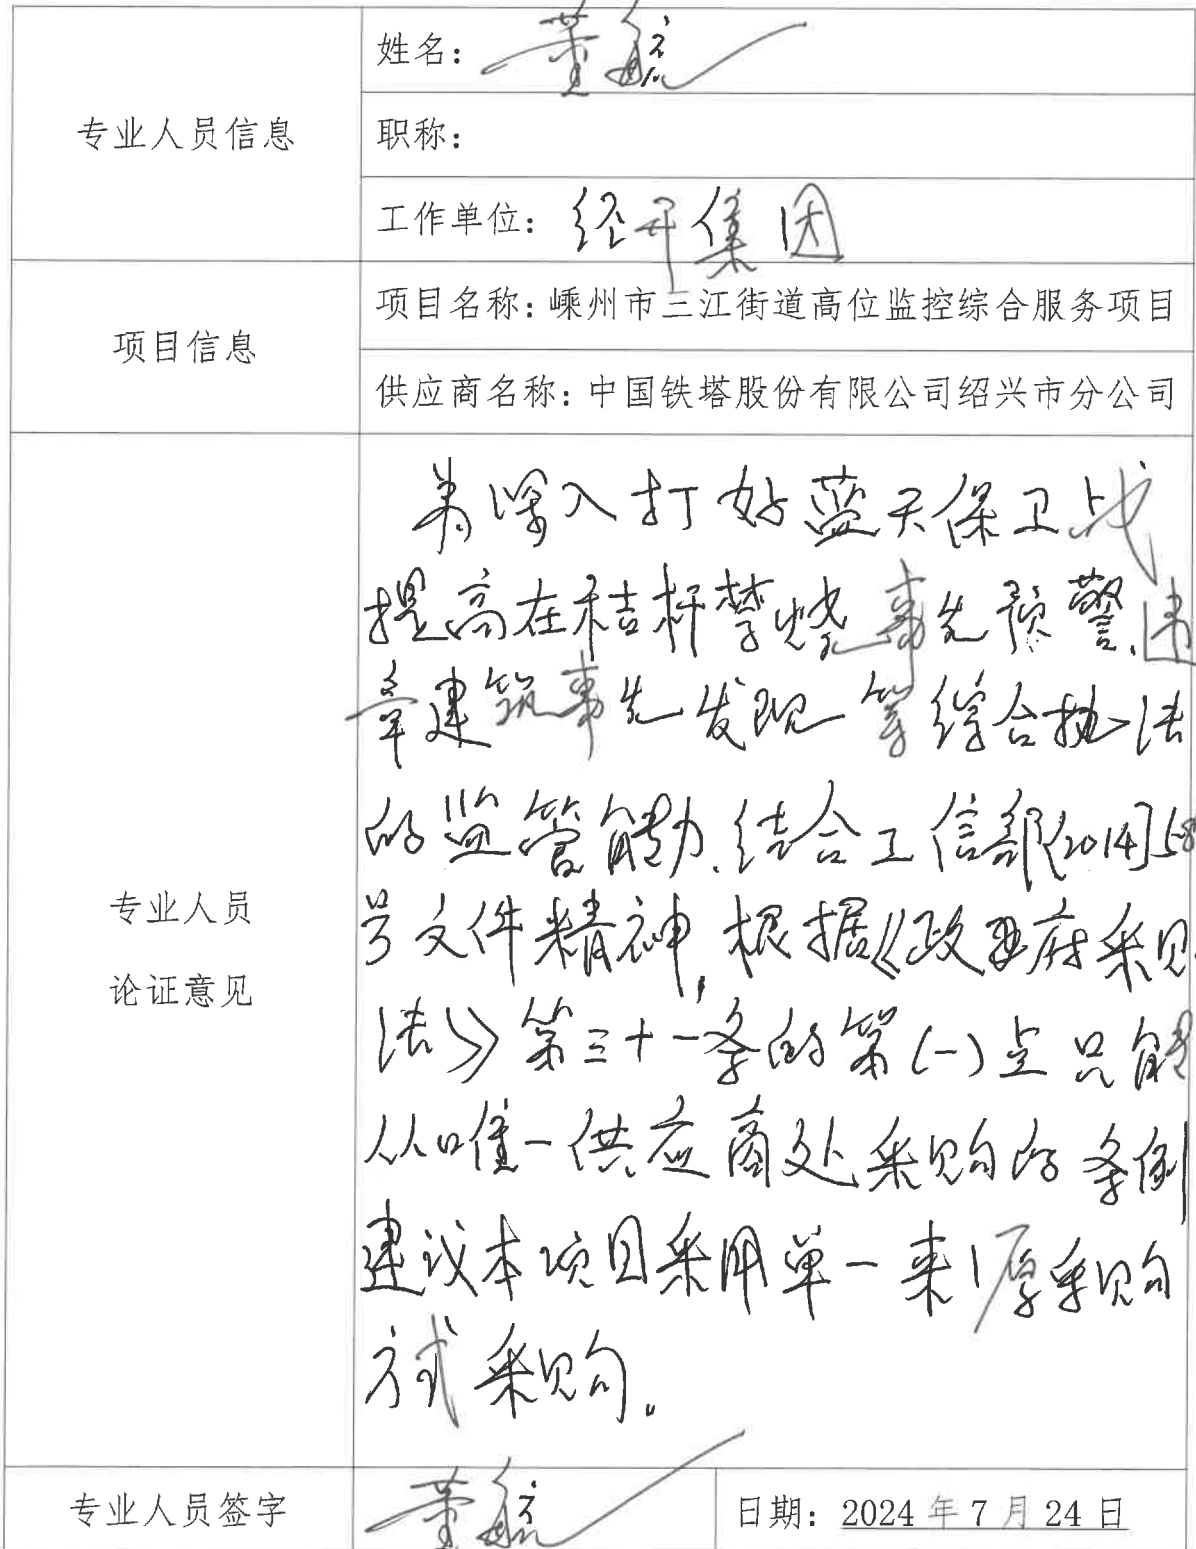 专业人员信息
姓名：董
职称：
工作单位：经开集团
项目信息
项目名称：嵊州市三江街道高位监控综合服务项目
供应商名称：中国铁塔股份有限公司绍兴市分公司
专业人员
论证意见
为深入打好蓝天保卫战
提高在秸秆禁烧事先预警、违
章建筑事先发现等综合执法
的监管能力、结合工信部[2014]58
号文件精神,根据《政府采购
法》第三十一条的第(一)点只能
从唯一供应商处采购的条例
建议本项目采用单一来源采购
方式采购。
专业人员签字
董
日期：2024年7月24日